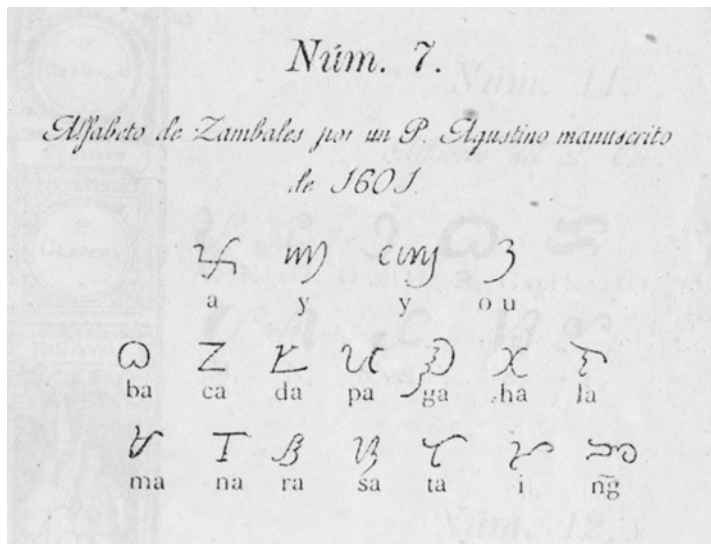 Núm. 7.
Alfabeto de Zambales por un P. Agustino manuscrito
de 1601.
a y y o u
ba ca da pa ga ha la
ma na ra sa ta i n̄g